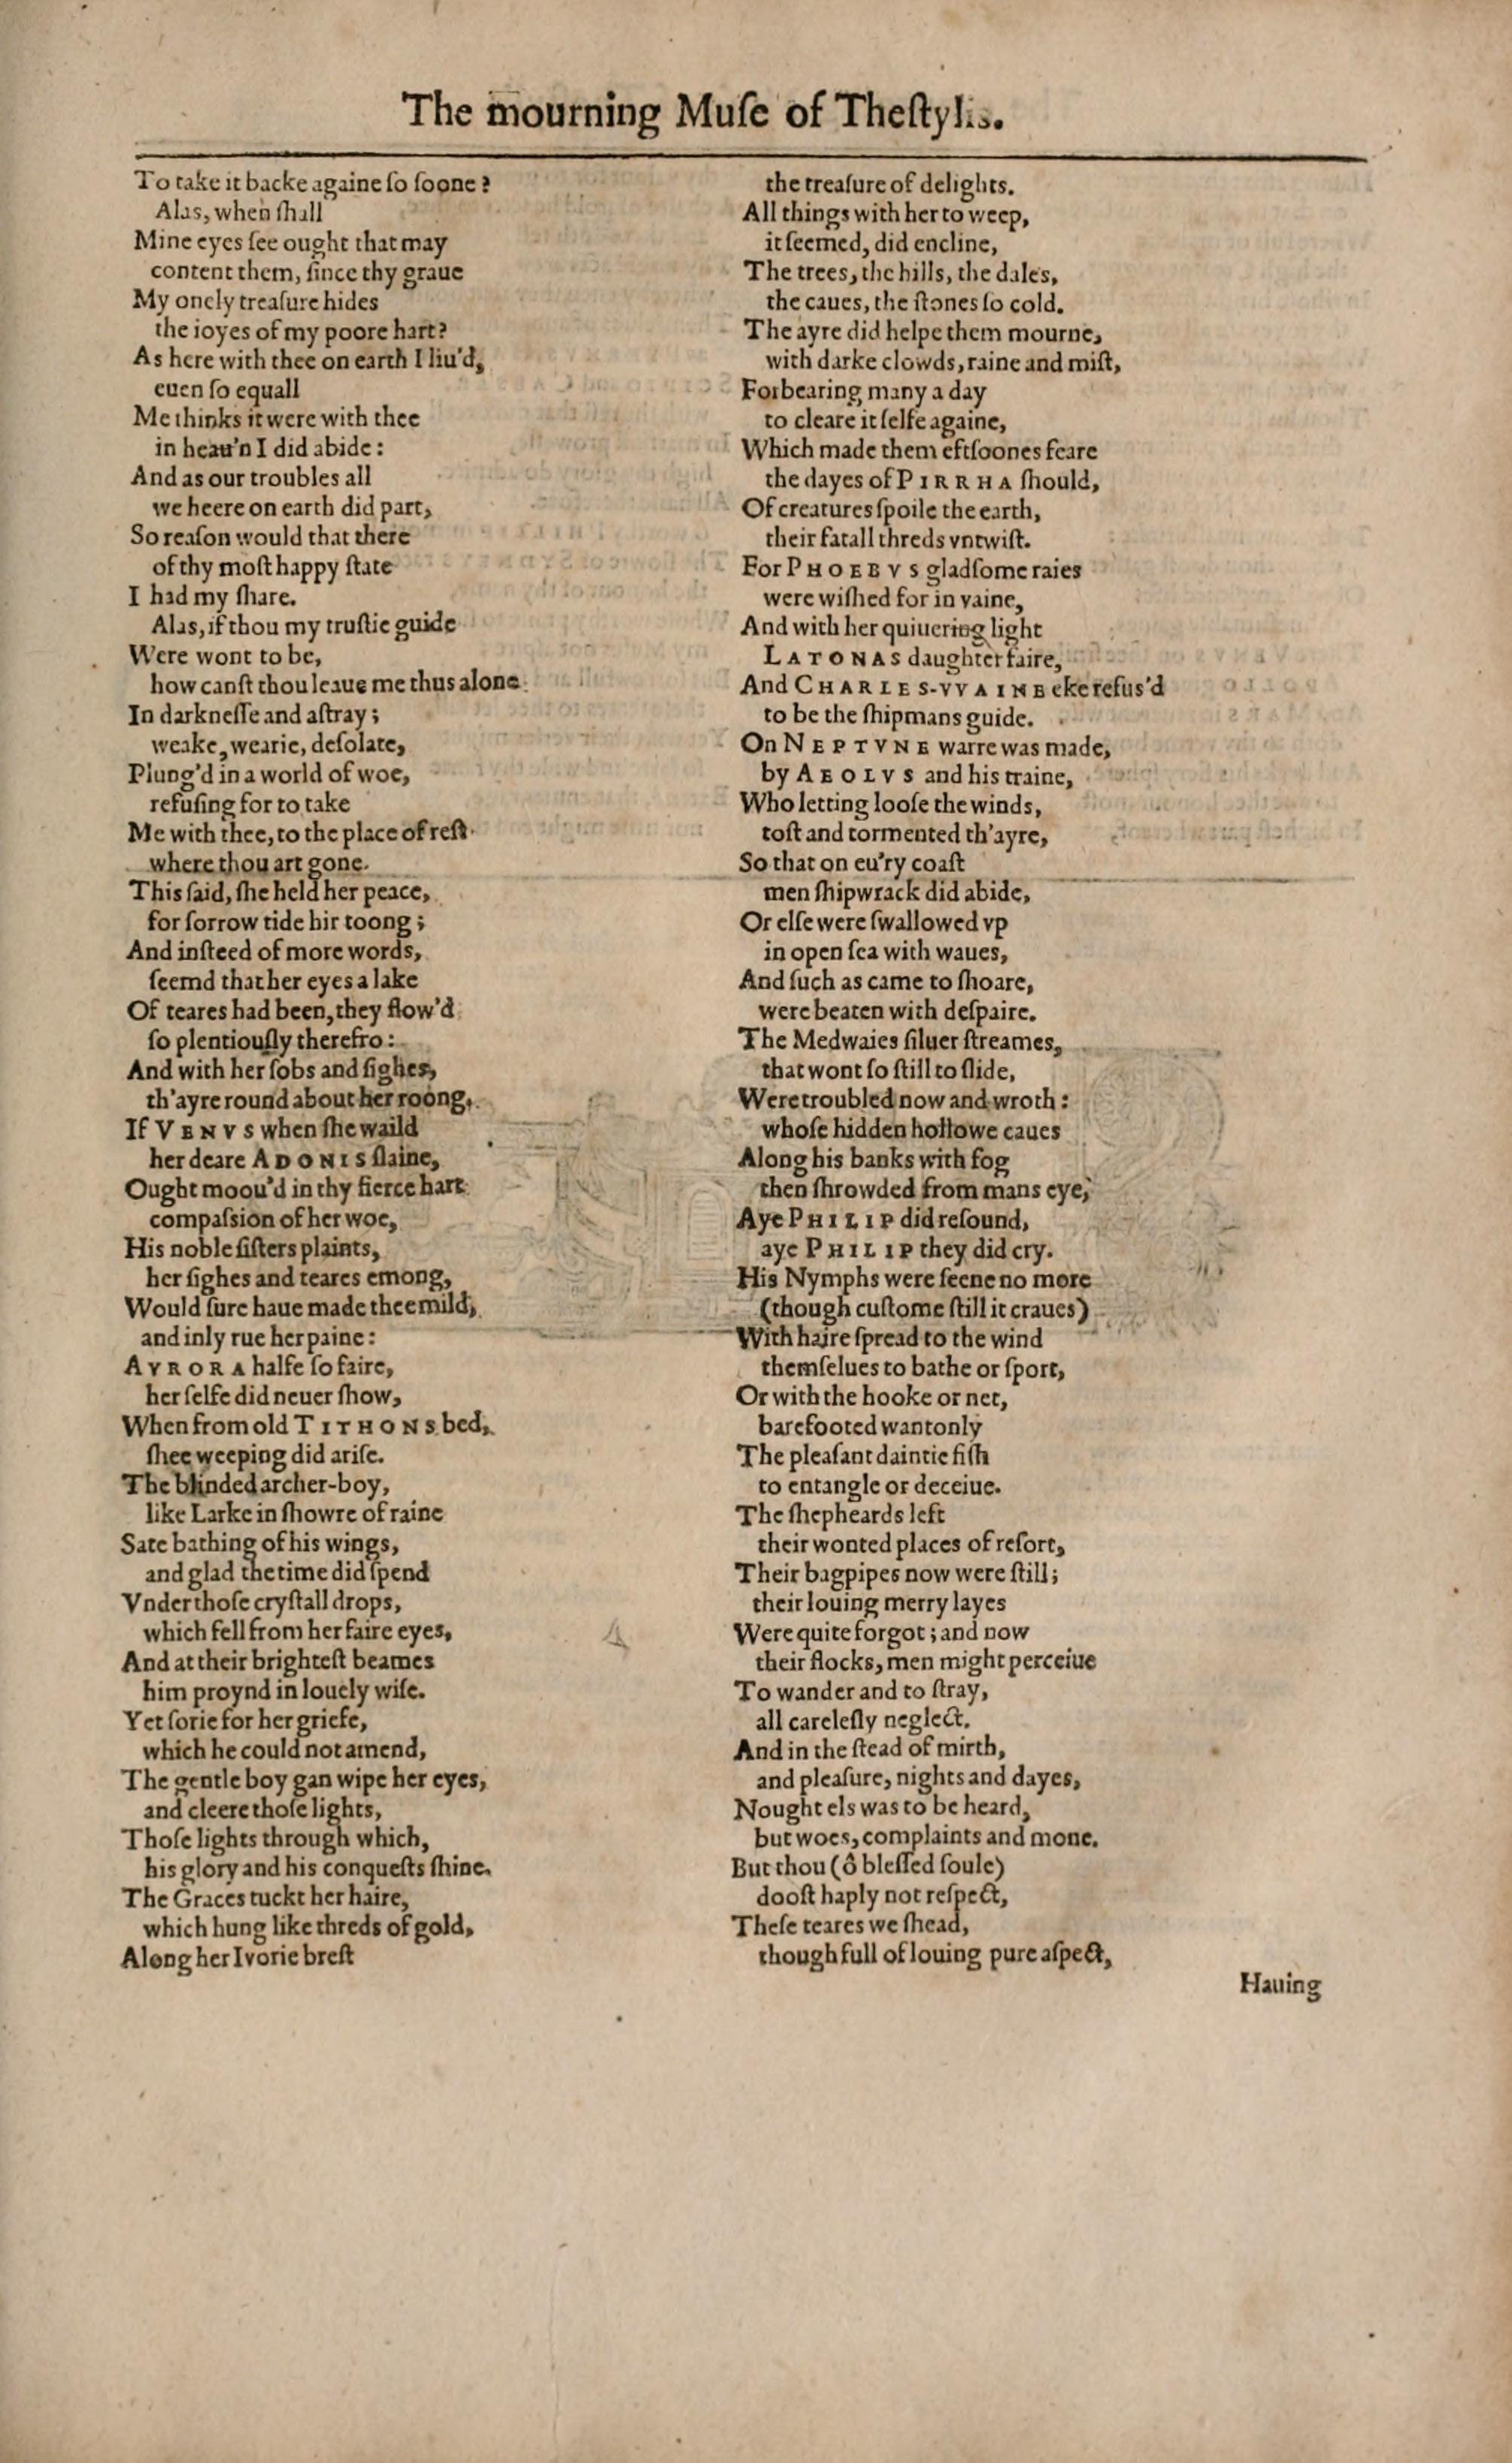 The mourning Muſe of Theſtylis.
To take it backe againe ſo ſoone?
Alas, when ſhall
Mine eyes ſee ought that may
content them, ſince thy graue
My onely treaſure hides
the ioyes of my poore hart?
As here with thee on earth I liu'd,
euen ſo equall
Me thinks it were with thee
in heau'n I did abide:
And as our troubles all
we heere on earth did part,
So reaſon would that there
of thy moſt happy ſtate
I had my ſhare.
Alas, if thou my truſtie guide
Were wont to be,
how canſt thou leaue me thus alone
In darkneſſe and aſtray;
weake, wearie, deſolate,
Plung'd in a world of woe,
refuſing for to take
Me with thee, to the place of reſt
where thou art gone.
This ſaid, ſhe held her peace,
for ſorrow tide hir toong;
And inſteed of more words,
ſeemd that her eyes a lake
Of teares had been, they flow'd
ſo plentiouſly therefro:
And with her ſobs and ſighes,
th'ayre round about her roong.
If VENVS when ſhe waild
her deare ADONIS ſlaine,
Ought moou'd in thy fierce hart
compaſsion of her woe,
His noble ſiſters plaints,
her ſighes and teares emong,
Would ſure haue made thee mild,
and inly rue her paine:
AVRORA halfe ſo faire,
her ſelfe did neuer ſhow,
When from old TITHONS bed,
ſhee weeping did ariſe.
The blinded archer-boy,
like Larke in ſhowre of raine
Sate bathing of his wings,
and glad the time did ſpend
Vnder thoſe cryſtall drops,
which fell from her faire eyes,
And at their brighteſt beames
him proynd in louely wiſe.
Yet ſorie for her griefe,
which he could not amend,
The gentle boy gan wipe her eyes,
and cleere thoſe lights,
Thoſe lights through which,
his glory and his conqueſts ſhine.
The Graces tuckt her haire,
which hung like threds of gold,
Along her Ivorie breſt
the treaſure of delights.
All things with her to weep,
it ſeemed, did encline,
The trees, the hills, the dales,
the caues, the ſtones ſo cold.
The ayre did helpe them mourne,
with darke clowds, raine and miſt,
Forbearing many a day
to cleare it ſelfe againe,
Which made them eftſoones feare
the dayes of PIRRHA ſhould,
Of creatures ſpoile the earth,
their fatall threds vntwiſt.
For PHOEBVS gladſome raies
were wiſhed for in vaine,
And with her quiuering light
LATONAS daughter faire,
And CHARLES-VVAINE eke refus'd
to be the ſhipmans guide.
On NEPTVNE warre was made,
by AEOLVS and his traine,
Who letting looſe the winds,
toſt and tormented th'ayre,
So that on eu'ry coaſt
men ſhipwrack did abide,
Or elſe were ſwallowed vp
in open ſea with waues,
And ſuch as came to ſhoare,
were beaten with deſpaire.
The Medwaies ſiluer ſtreames,
that wont ſo ſtill to ſlide,
Were troubled now and wroth:
whoſe hidden hollowe caues
Along his banks with fog
then ſhrowded from mans eye,
Aye PHILIP did reſound,
aye PHILIP they did cry.
His Nymphs were ſeene no more
(though cuſtome ſtill it craues)
With haire ſpread to the wind
themſelues to bathe or ſport,
Or with the hooke or net,
barefooted wantonly
The pleaſant daintie fiſh
to entangle or deceiue.
The ſhepheards left
their wonted places of reſort,
Their bagpipes now were ſtill;
their louing merry layes
Were quite forgot; and now
their flocks, men might perceiue
To wander and to ſtray,
all careleſly neglect.
And in the ſtead of mirth,
and pleaſure, nights and dayes,
Nought els was to be heard,
but woes, complaints and mone.
But thou (ô bleſſed ſoule)
dooſt haply not reſpect,
Theſe teares we ſhead,
though full of louing pure aſpect,
Hauing